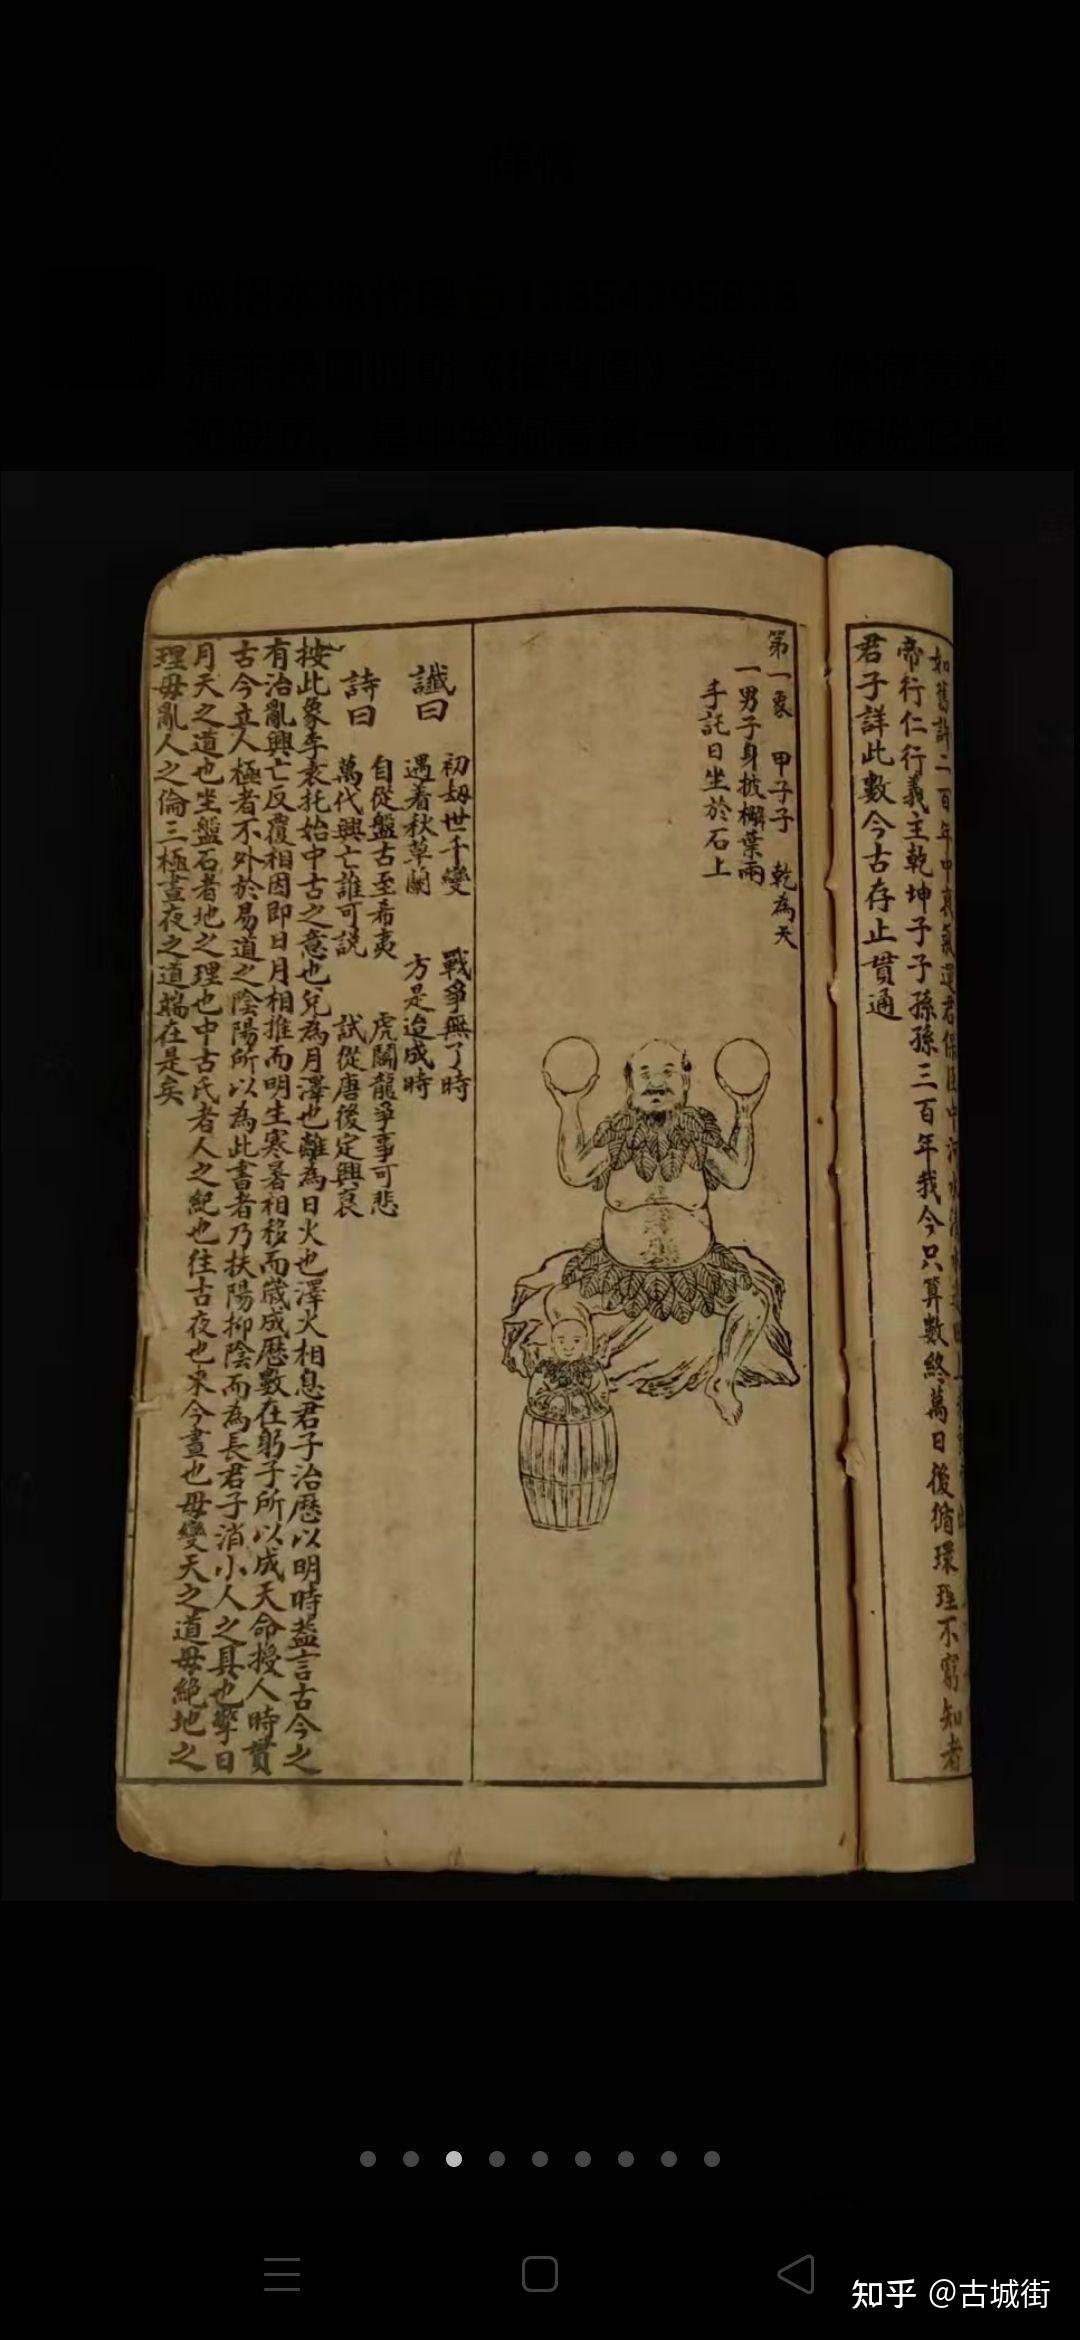 详情
清末民国时期《推背图》全书，保存完整
无缺页，是中华预言第一奇书，传说它是
帝行仁行義主乾坤子子孫孫三百年我今只算數終萬日後循環理不窮知者
君子詳此數今古存止貫通
第一象 甲子子 乾為天
一男子身披槲葉兩
手託日坐於石上
讖曰
初劫世千變 戰爭無了時
遇着秋草闌 方是治成時
詩曰
自從盤古至希夷 虎鬬龍爭事可悲
萬代興亡誰可説 試從唐後定興衰
按此象李袁托始中古之意也兌為月澤也離為日火也澤火相息君子治歷以明時蓋言古今之
有治亂興亡反覆相因即日月相推而明生寒暑相移而歲成歷數在躬子所以成天命授人時貫
古今立人極者不外於易道之陰陽所以為此書者乃扶陽抑陰而為長君子消小人之具也擎日
月天之道也坐盤石者地之理也中古氏者人之紀也往古夜也來今晝也毋變天之道毋絶地之
理毋亂人之倫三極晝夜之道耑在是矣
知乎 @古城街